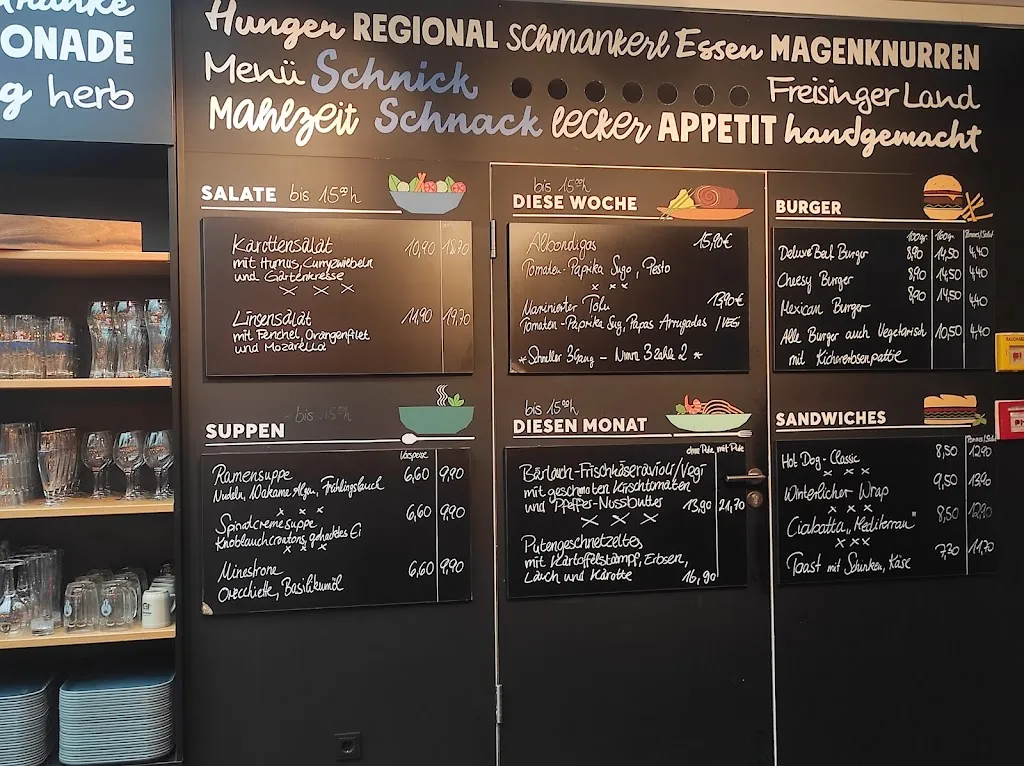 ONADE
g herb
Hunger REGIONAL Schmankerl Essen MAGENKNURREN
Menü Schnick Freisinger Land
MAHLZEIT Schnack lecker APPETIT handgemacht
SALATE bis 15⁰⁰h
Karottensalat 10,90 18,70
mit Humus, Curryzwiebeln
und Gartenkresse
x x x
Linsensalat 11,90 19,70
mit Fenchel, Orangenfilet
und Mozarella
SUPPEN - bis 15⁰⁰h
Vorspeise
Ramensuppe 6,60 9,90
Nudeln, Wakame Algen, Frühlingslauch
x x x
Spinatcremesuppe 6,60 9,90
Knoblauchcroutons, gehacktes Ei
x x x
Minestrone 6,60 9,90
Orecchiette, Basilikumöl
bis 15⁰⁰h
DIESE WOCHE
Albondigas 15,90€
Tomaten-Paprika Sugo, Pesto
x x x
Marinierter Tofu 13,90€
Tomaten-Paprika Sug, Papas Arrugadas /VEGI
*Schneller 3Gang - Nimm 3 zahle 2 *
bis 15⁰⁰h
DIESEN MONAT
ohne Pute mit Pute
Bärlauch-Frischkäseravioli/Vegi
mit geschmolten Kirschtomaten
und Pfeffer-Nussbutter 13,90 21,70
x x x
Putengeschnetzeltes,
mit Kartoffelstampf, Erbsen,
Lauch und Karotte 16,90
BURGER
100gr. 160gr. Pommes/Salat
Deluxe Beef Burger 8,90 14,50 4,40
Cheesy Burger 8,90 14,50 4,40
Mexican Burger 8,90 14,50 4,40
Alle Burger auch Vegetarisch 10,50 4,40
mit Kichererbsenpattie
SANDWICHES
Pommes/Salat
Hot Dog-Classic 8,50 12,90
x x x
Winterlicher Wrap 9,50 13,90
x x x
Ciabatta „Mediterran" 8,50 12,90
x x x
Toast mit Schinken, Käse 7,30 11,70